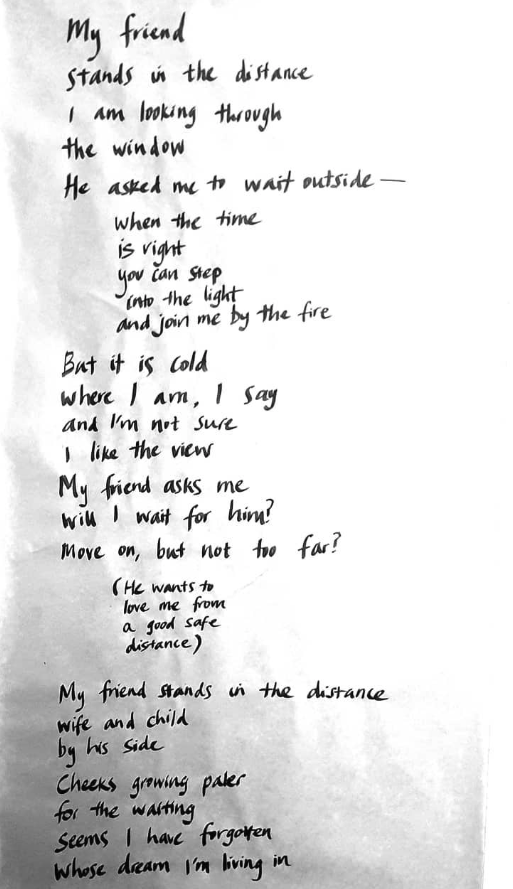 My friend
stands in the distance
I am looking through
the window
He asked me to wait outside —
when the time
is right
you can step
into the light
and join me by the fire
But it is cold
where I am, I say
and I'm not sure
I like the view
My friend asks me
will I wait for him?
Move on, but not too far?
(He wants to
love me from
a good safe
distance)
My friend stands in the distance
wife and child
by his side
Cheeks growing paler
for the waiting
Seems I have forgotten
Whose dream I'm living in